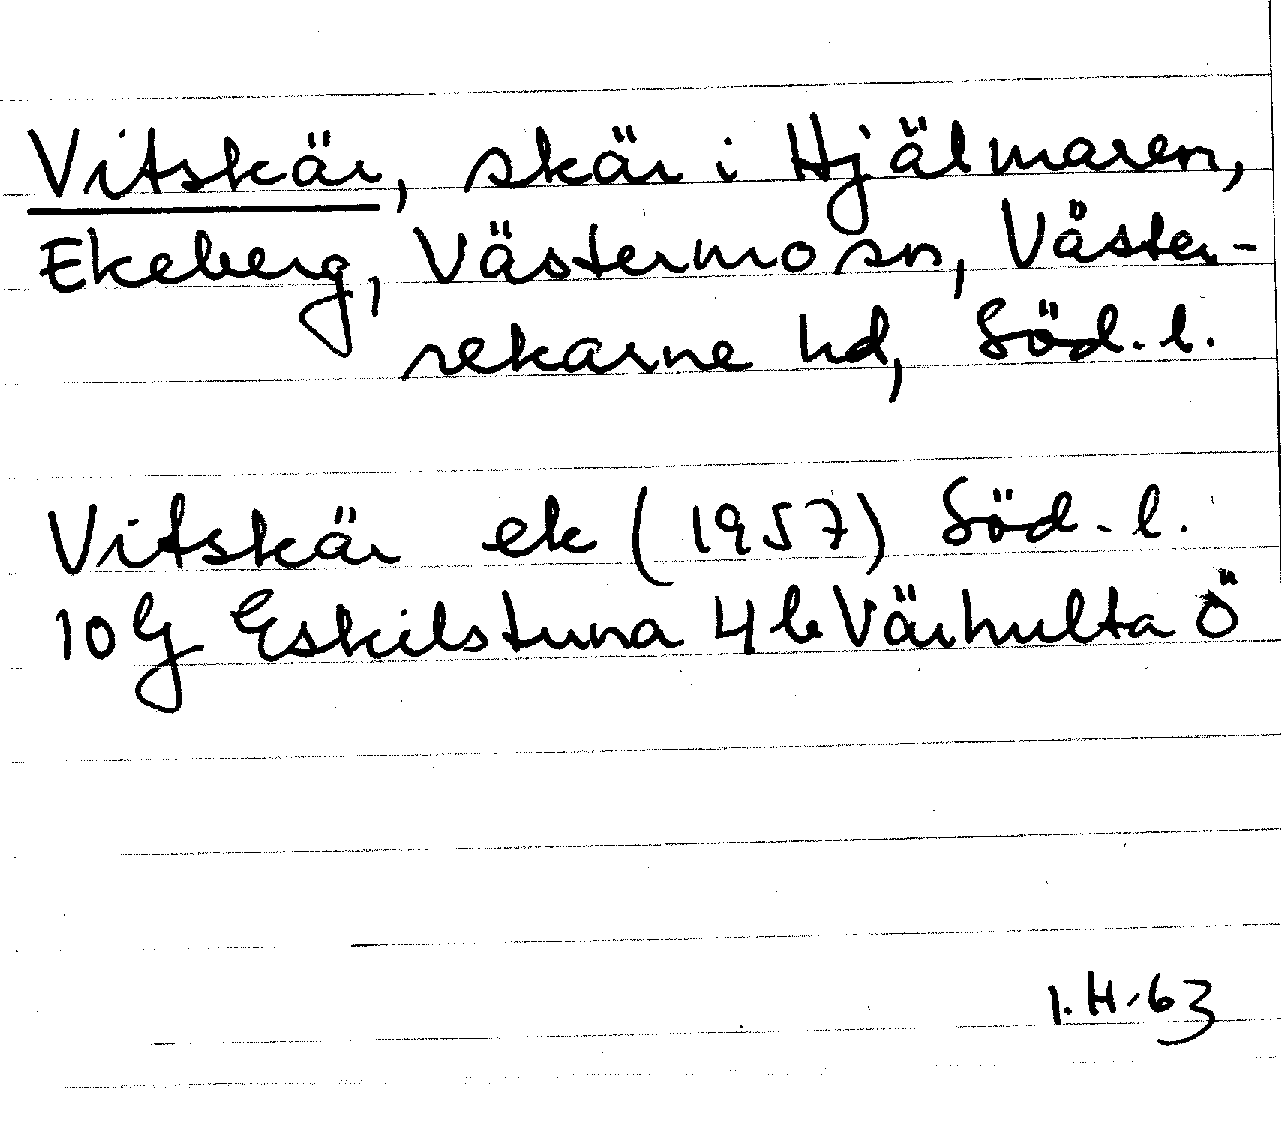 Vitskär, skär i Hjälmaren,
Ekeberg, Västermo sn, Väster-
rekarne hd, Söd. l.
Vitskär ek (1957) Söd. l.
10G Eskilstuna 4b Värhulta Ö
I.H. 63